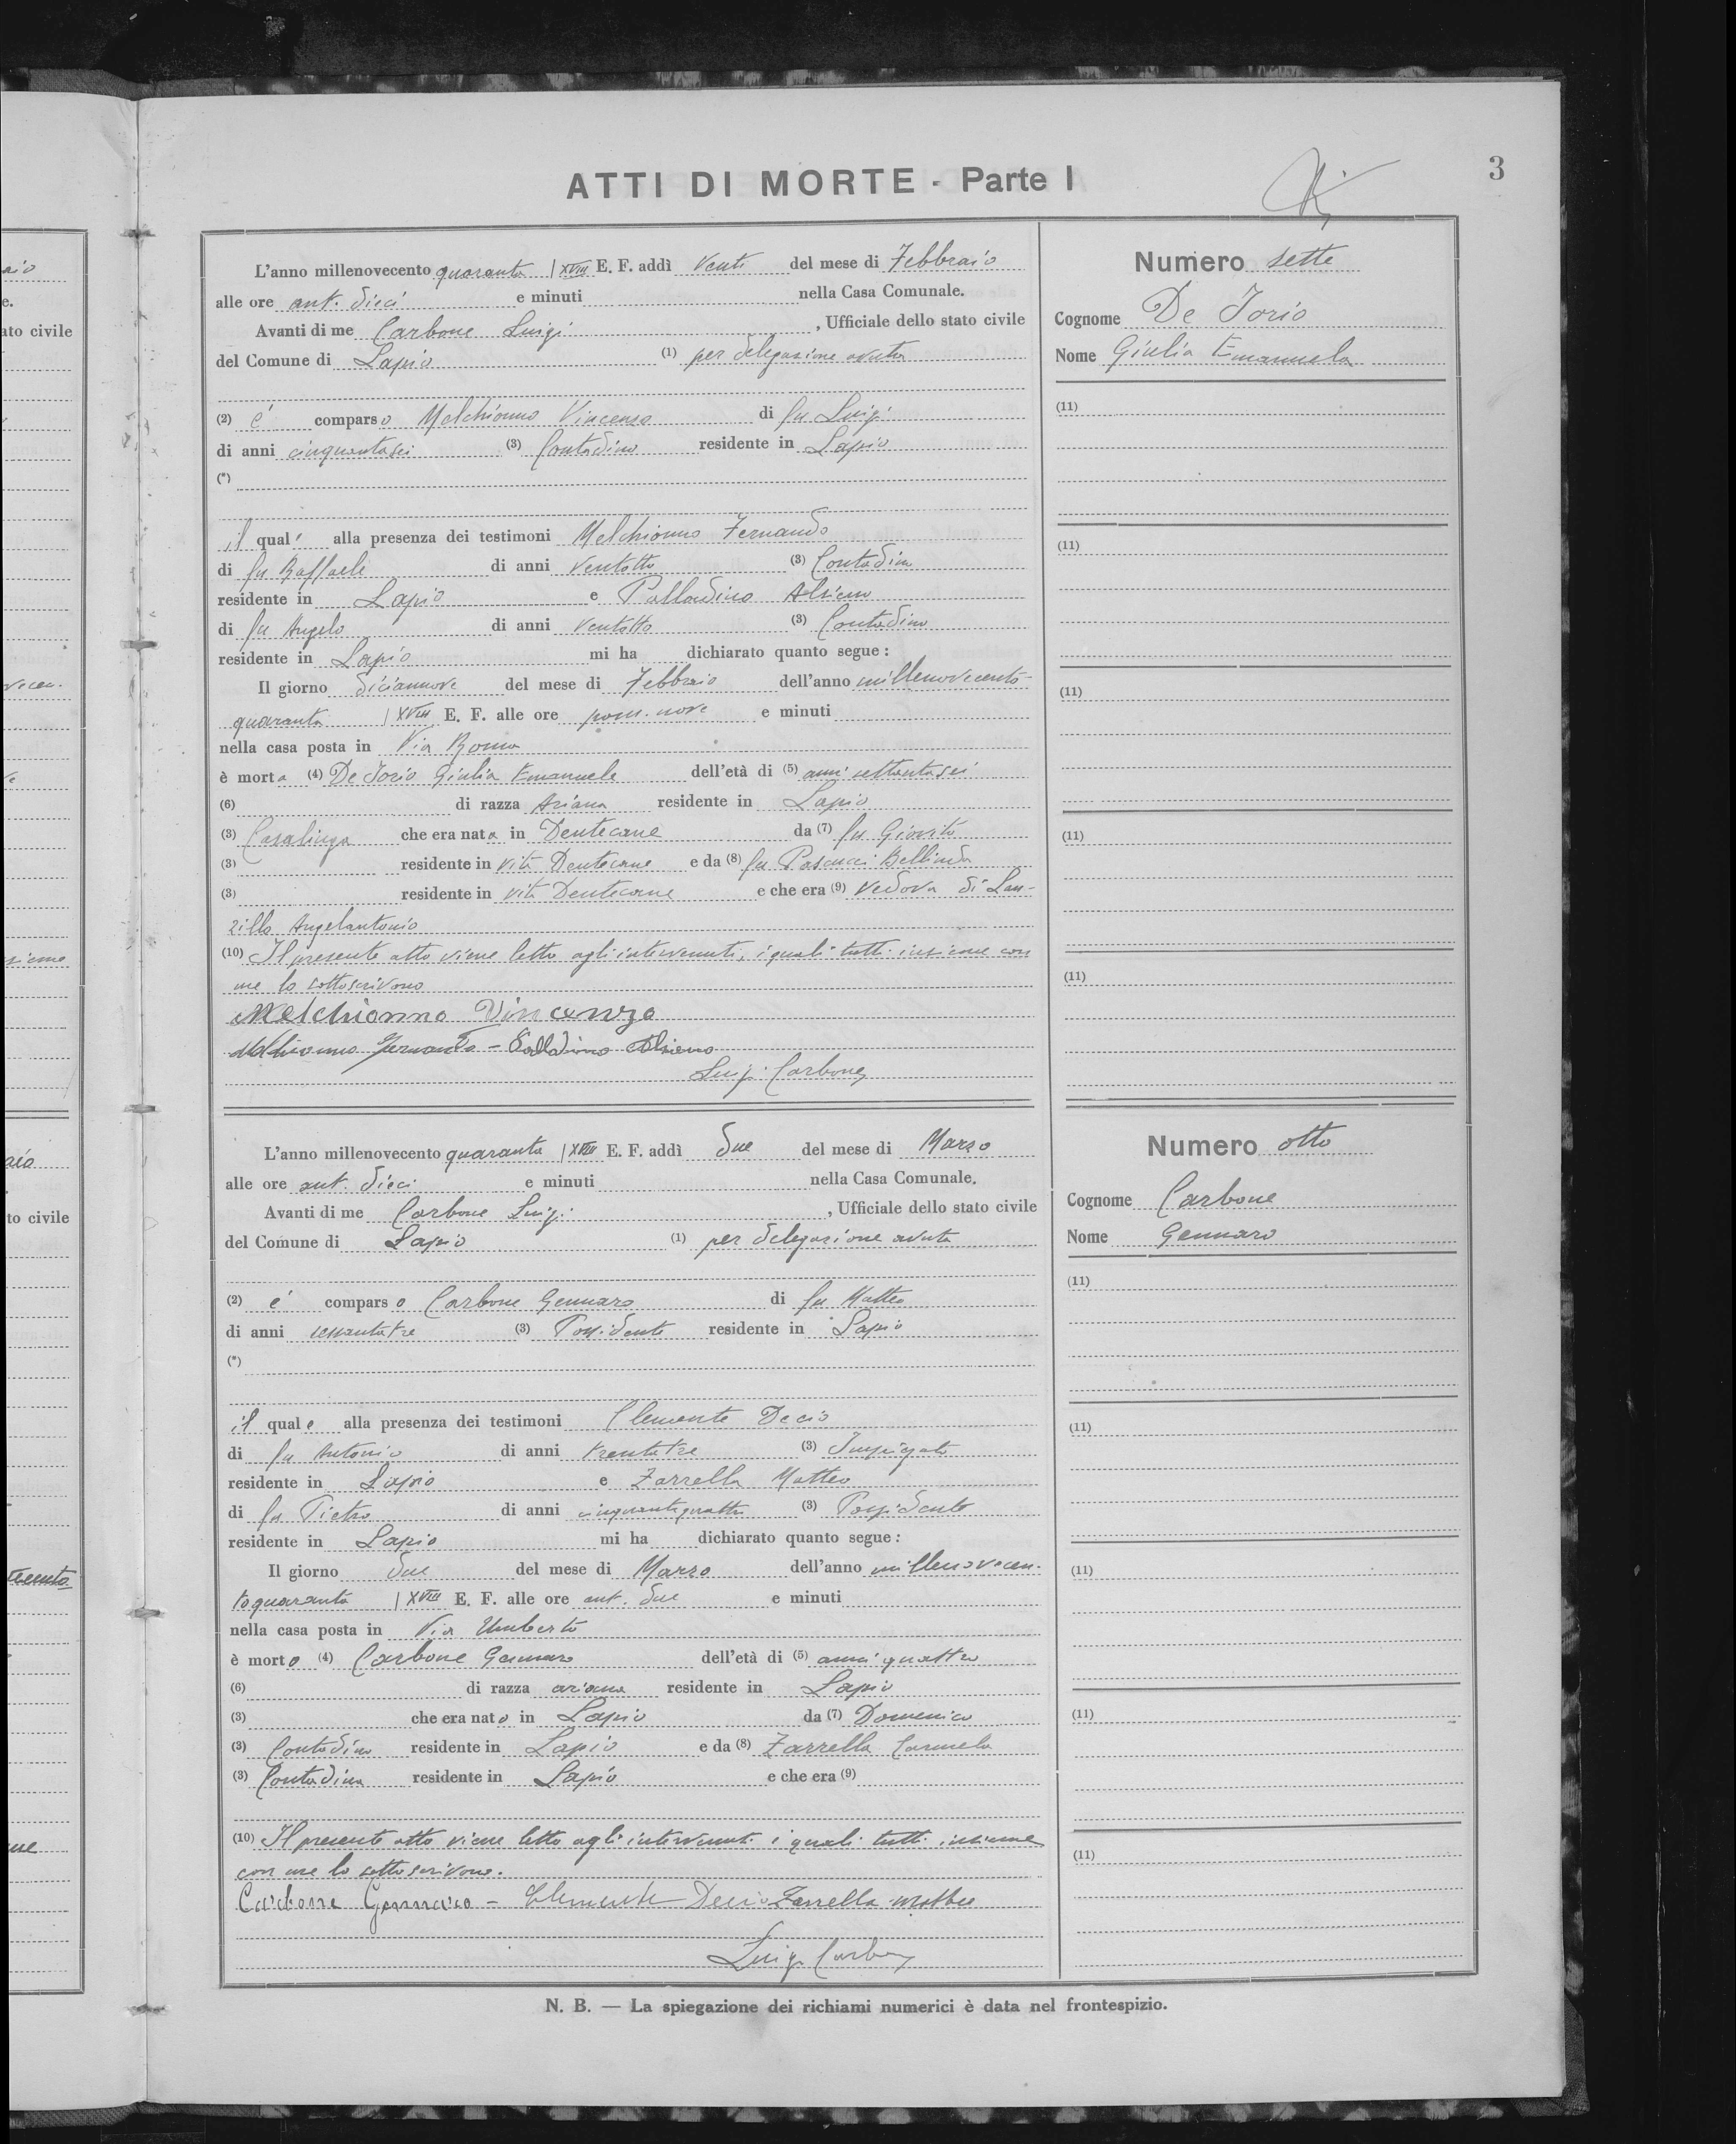 ATTI DI MORTE - Parte I
3
L'anno millenovecento quaranta / XVIII E. F. addì venti del mese di Febbraio
alle ore ant. dieci e minuti nella Casa Comunale.
Avanti di me Carbone Luigi, Ufficiale dello stato civile
del Comune di Lapio (1) per delegazione avuta
(2) è comparso Melchionno Vincenzo di fu Luigi
di anni cinquantasei (3) Contadino residente in Lapio
(*)
il quale alla presenza dei testimoni Melchionno Fernando
di fu Raffaele di anni ventotto (3) Contadino
residente in Lapio e Palladino Alsieno
di fu Angelo di anni ventotto (3) Contadino
residente in Lapio mi ha dichiarato quanto segue:
Il giorno diciannove del mese di Febbraio dell'anno millenovecento-
quaranta / XVIII E. F. alle ore pom. nove e minuti
nella casa posta in Via Roma
è morta (4) De Iorio Giulia Emanuela dell'età di (5) anni settantasei
(6) di razza Ariana residente in Lapio
(3) Casalinga che era nata in Dentecane da (7) fu Giovito
(3) residente in vita Dentecane e da (8) fu Pascucci Bellinda
(3) residente in vita Dentecane e che era (9) vedova di Lan-
zillo Angelantonio
(10) Il presente atto viene letto agli intervenuti, i quali tutti insieme con
me lo sottoscrivono
Melchionno Vincenzo
Melchionno Fernando - Palladino Alsieno
Luigi Carbone
Numero sette
Cognome De Iorio
Nome Giulia Emanuela
(11)
(11)
(11)
(11)
(11)
L'anno millenovecento quaranta / XVIII E. F. addì due del mese di Marzo
alle ore ant. dieci e minuti nella Casa Comunale.
Avanti di me Carbone Luigi, Ufficiale dello stato civile
del Comune di Lapio (1) per delegazione avuta
(2) è comparso Carbone Gennaro di fu Matteo
di anni sessantatre (3) Possidente residente in Lapio
(*)
il quale alla presenza dei testimoni Clemente Decio
di fu Antonio di anni trentatre (3) Impiegato
residente in Lapio e Zarrella Matteo
di fu Pietro di anni cinquantaquattro (3) Possidente
residente in Lapio mi ha dichiarato quanto segue:
Il giorno due del mese di Marzo dell'anno millenovecen-
toquaranta / XVIII E. F. alle ore ant. due e minuti
nella casa posta in Via Umberto
è morto (4) Carbone Gennaro dell'età di (5) anni quattro
(6) di razza ariana residente in Lapio
(3) che era nato in Lapio da (7) Domenico
(3) Contadino residente in Lapio e da (8) Zarrella Carmela
(3) Contadina residente in Lapio e che era (9)
(10) Il presente atto viene letto agli intervenuti i quali tutti insieme
con me lo sottoscrivono.
Carbone Gennaro - Clemente Decio Zarrella Matteo
Luigi Carbone
Numero otto
Cognome Carbone
Nome Gennaro
(11)
(11)
(11)
(11)
(11)
N. B. — La spiegazione dei richiami numerici è data nel frontespizio.